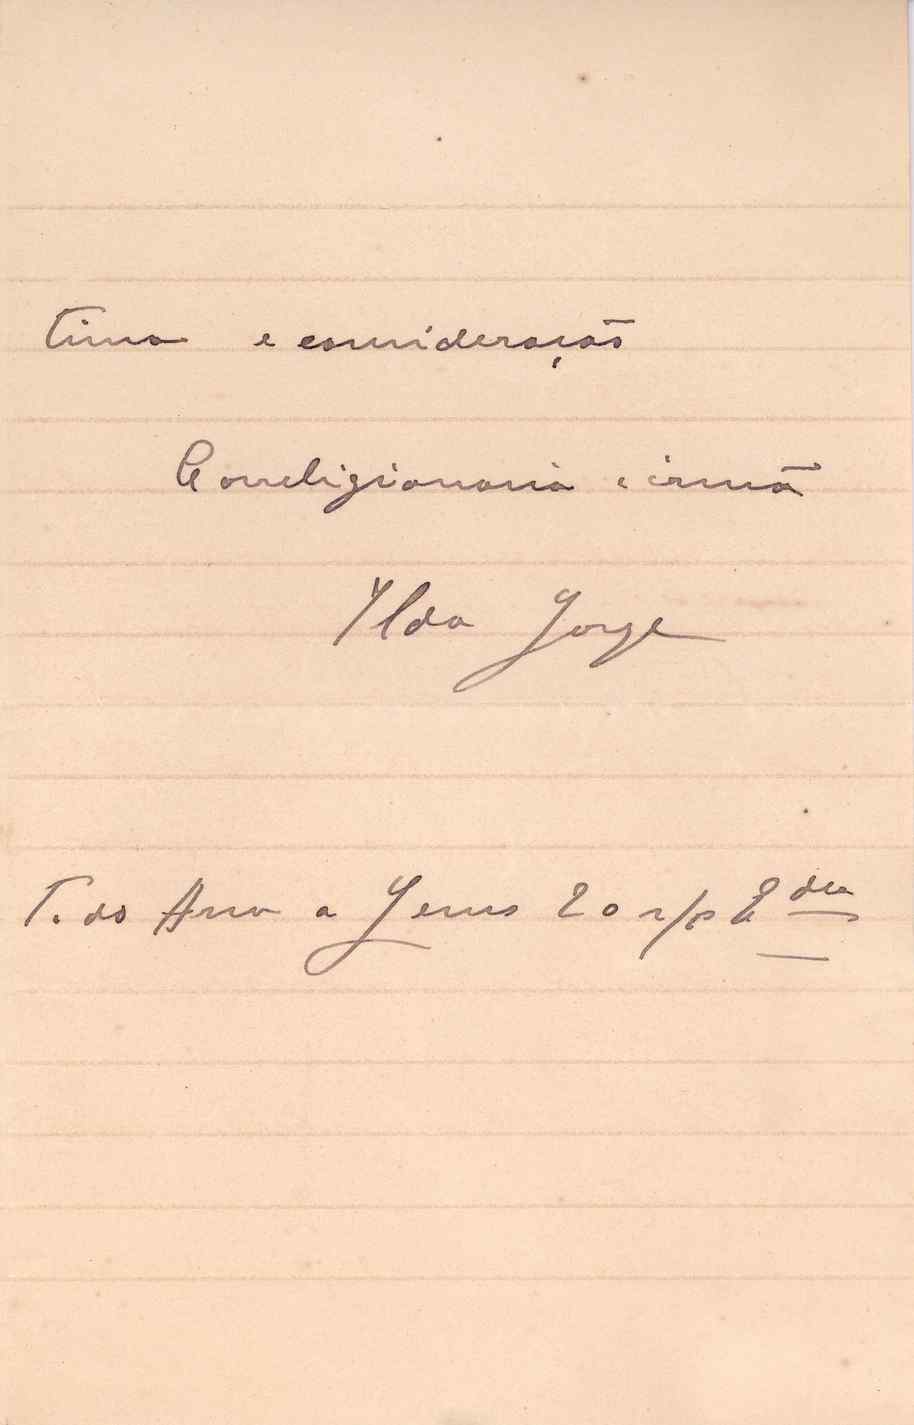 tima e consideração
Correligionaria e irmã
Ilda Jorge
T. do Arco a Jesus 20 r/c E dta